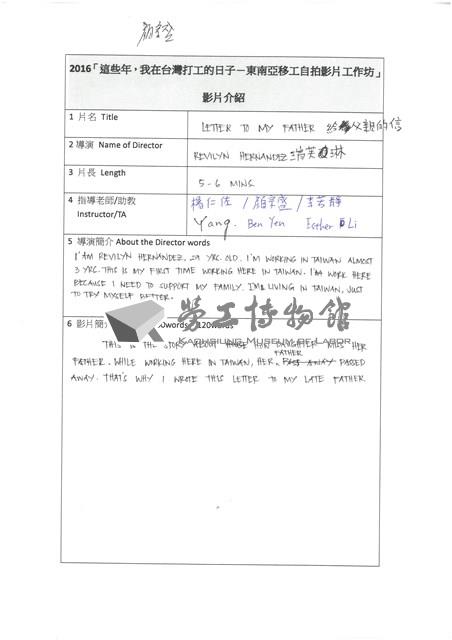 2016「這些年，我在台灣打工的日子－東南亞移工自拍影片工作坊」
影片介紹
1 片名 Title
LETTER TO MY FATHER 給父親的信
2 導演 Name of Director
REVILYN HERNANDEZ 瑞芙琳
3 片長 Length
5-6 MINS
4 指導老師/助教
Instructor/TA
楊仁佐 / 顏宗盛 / 李若靜
Yang. Ben Yen Esther Li
5 導演簡介 About the Director words
I'AM REVILYN HERNANDEZ, 29 YRS. OLD. I'M WORKING IN TAIWAN ALMOST
3 YRS. THIS IS MY FIRST TIME WORKING HERE IN TAIWAN. I'AM WORK HERE
BECAUSE I NEED TO SUPPORT MY FAMILY. LIVING IN TAIWAN, JUST
TO TRY MYSELF BETTER.
勞工博物館
KAOHSIUNG MUSEUM OF LABOR
6 影片簡 words 120words
THIS IS THE STORY ABOUT DAUGHTER HER
FATHER. WHILE WORKING HERE IN TAIWAN, HER FATHER PASS AWAY PASSED
AWAY. THAT'S WHY I WROTE THIS LETTER TO MY LATE FATHER